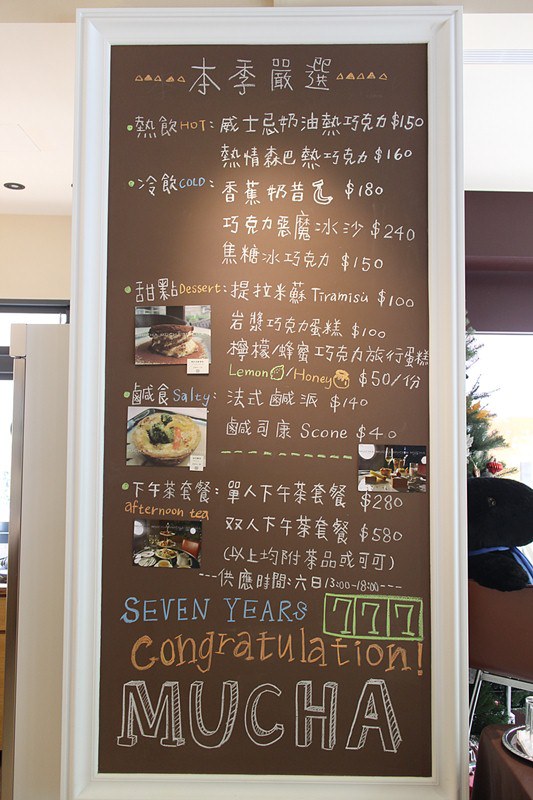 本季嚴選
熱飲HOT: 威士忌奶油熱巧克力 $150
熱情森巴熱巧克力 $160
冷飲COLD: 香蕉奶昔 $180
巧克力惡魔冰沙 $240
焦糖冰巧克力 $150
甜點Dessert: 提拉米蘇 Tiramisù $100
岩漿巧克力蛋糕 $100
檸檬/蜂蜜巧克力旅行蛋糕
Lemon/Honey $50/份
鹹食Salty: 法式鹹派 $140
鹹司康 Scone $40
下午茶套餐: 單人下午茶套餐 $280
afternoon tea
双人下午茶套餐 $580
(以上均附茶品或可可)
---供應時間:六日13:00~18:00---
SEVEN YEARS 777
Congratulation!
MUCHA